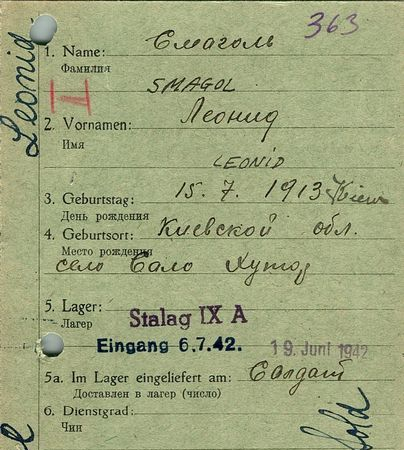 363
Leonid
Смаголь
1. Name:
Фамилия
SMAGOL
I
Леонид
2. Vornamen:
Имя
LEONID
3. Geburtstag: 15. 7. 1913 Kiew
День рождения
4. Geburtsort: Киевской обл.
Место рождения
село Сало Хутор
5. Lager:
Лагер
Stalag IX A
Eingang 6.7.42. 19. Juni 1942
5a. Im Lager eingeliefert am: Солдат
Доставлен в лагер (число)
6. Dienstgrad:
Чин